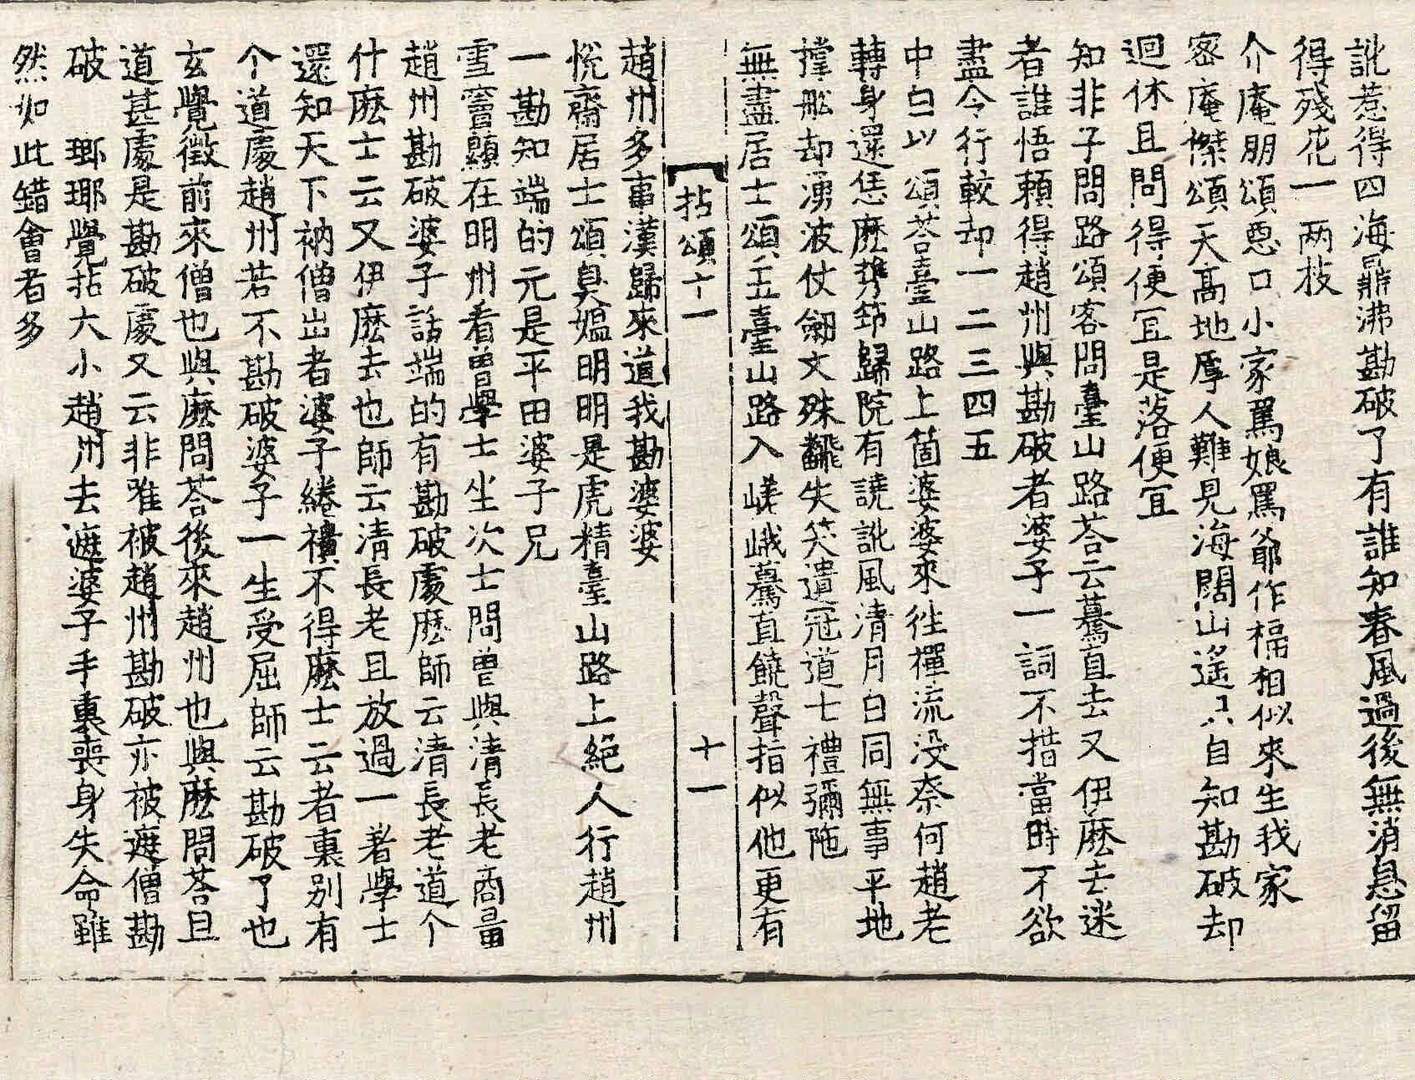 訛惹得四海鼎沸勘破了有誰知春風過後無消息留
得殘花一兩枝
介庵朋頌惡口小家罵娘罵爺作榻相似來生我家
密庵傑頌天高地厚人難見海闊山遙只自知勘破却
迴休且問得便冝是落便冝
知非子問路頌客問臺山路荅云驀直去又伊麽去迷
者誰悟賴得趙州與勘破者婆子一詞不措當時不欲
盡令行較却一二三四五
中白以頌荅臺山路上箇婆婆來徃禪流没奈何趙老
轉身還恁麽携筇歸院有譊訛風清月白同無事平地
撑舩却湧波仗劒文殊飜失笑遺冠道士禮彌陁
無盡居士頌五臺山路入嵯峨驀直饒聲指似他更有
拈頌十一　十一
趙州多事漢歸來道我勘婆婆
悅齋居士頌臭媼明明是虎精臺山路上絕人行趙州
一勘知端的元是平田婆子兄
雪竇顯在明州看曽學士坐次士問曽與清長老商量
趙州勘破婆子話端的有勘破處麽師云清長老道个
什麽士云又伊麽去也師云清長老且放過一著學士
還知天下衲僧出者婆子䋥䙡不得麽士云者裏別有
个道處趙州若不勘破婆子一生受屈師云勘破了也
玄覺徵前來僧也與麽問荅後來趙州也與麽問荅且
道甚處是勘破處又云非唯被趙州勘破亦被遮僧勘
破　瑯瑘覺拈大小趙州去遮婆子手裏喪身失命雖
然如此錯會者多